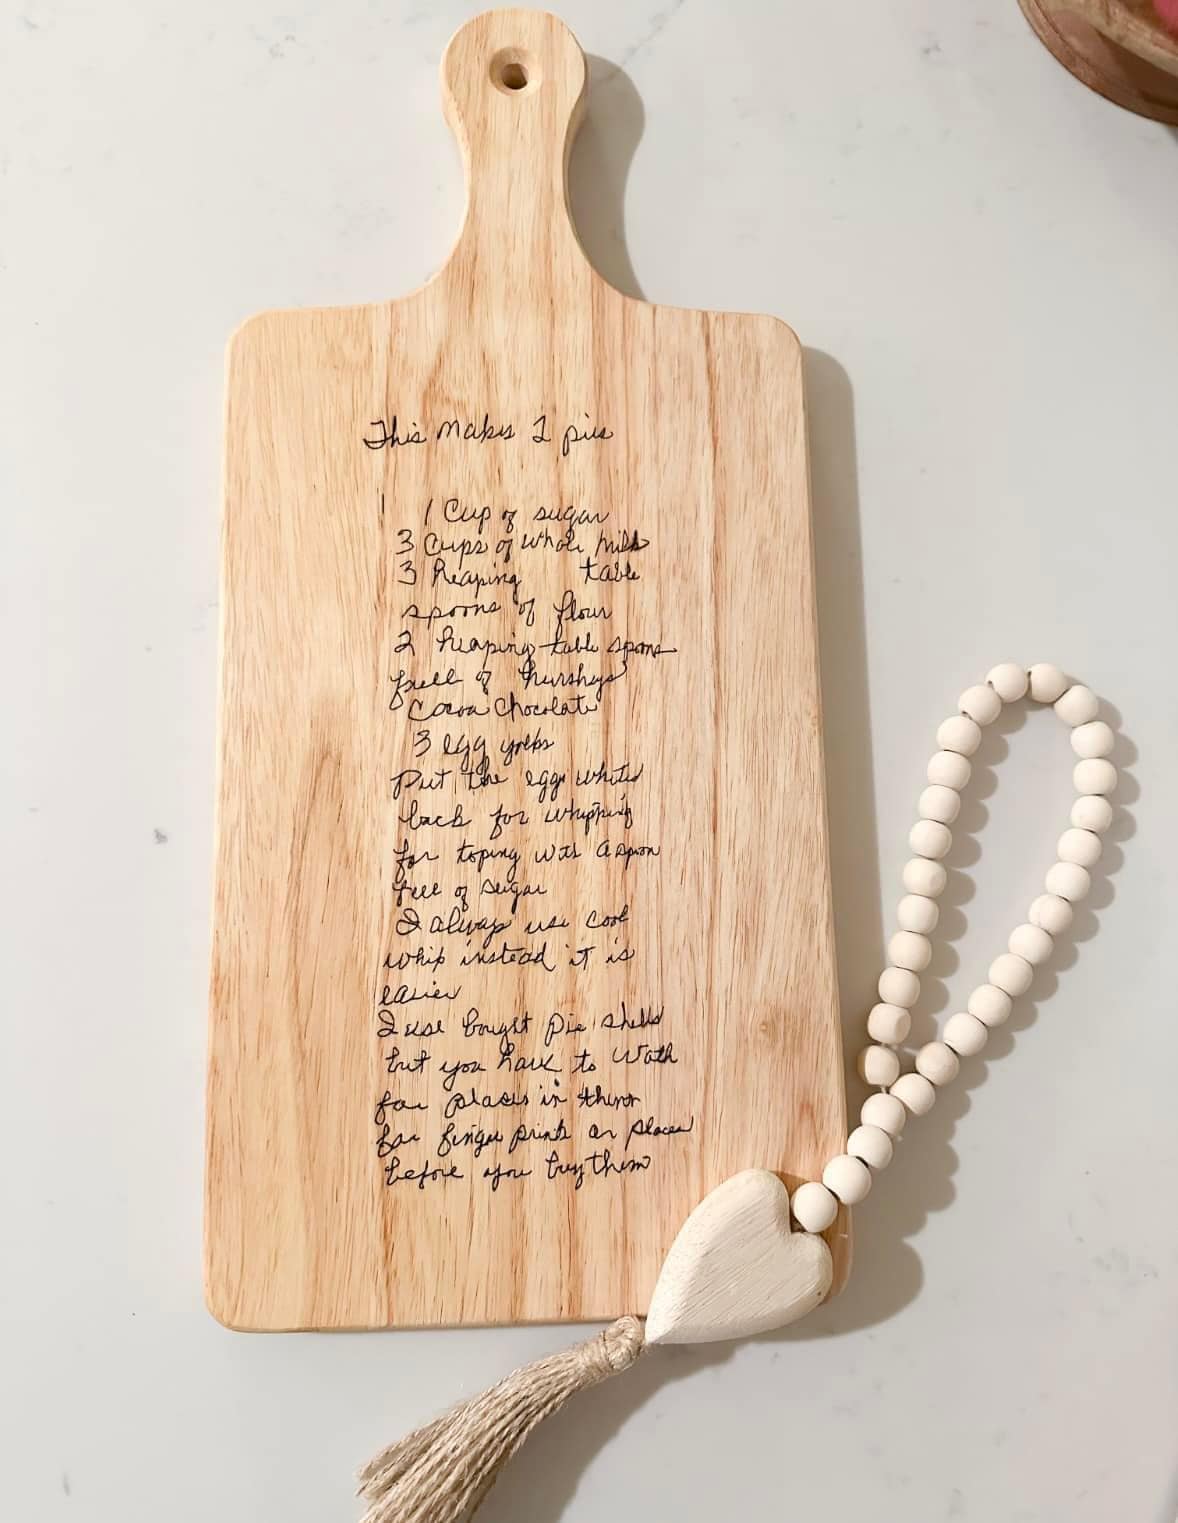 This makes 2 pies
1 1 Cup of sugar
3 Cups of whole milk
3 Heaping table
spoons of flour
2 heaping table spoons
full of hursheys
Cocoa Chocolate
3 egg yolks
Put the egg whites
back for whipping
for toping with a spoon
full of sugar
I always use cool
whip instead it is
easier
I use bought pie shells
but you have to watch
for places in them
for finger prints or places
before you buy them